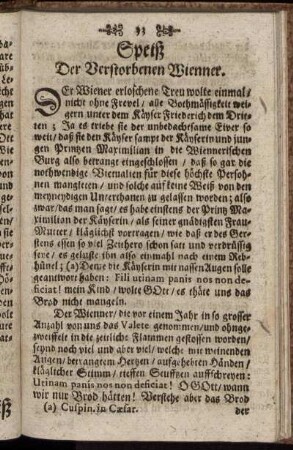 33
Speiß
Der Verstorbenen Wienner.
DEr Wiener erloschene Treu wolte einmal/
nicht ohne Frevel / alle Bothmässigkeit wei-
gern unter dem Käyser Friederich dem Drit-
ten; Ja es triebe sie der unbedachtsame Eiver so
weit/ daß sie den Käyser sampt der Käyserin und jun-
gen Printzen Maximilian in die Wiennerischen
Burg also betrangt eingeschlossen / daß so gar die
nothwendige Victualien für diese höchste Persoh-
nen mangleten/ und solche auf keine Weiß von den
meyneydigen Unterthanen zu gelassen worden; also
zwar/ das man sagt/ es habe einstens der Printz Ma-
ximilian der Käyserin / als seiner gnädigsten Frau-
Mutter / kläglichst vortragen/ wie daß er des Ger-
stens essen so viel Zeithero schon satt und verdrüssig
seye/ es geluste ihn also einmahl nach einem Reb-
hünel; (a) Deme die Käyserin mit nassen Augen solle
geantwort haben: Fili utinam panis nos non de-
ficiat! mein Kind / wolte GOtt/ es thäte uns das
Brod nicht mangeln.
Der Wienner/ die vor einem Jahr in so grosser
Anzahl von uns das Valete genommen/ und ohnge-
zweiffelt in die zeitliche Flammen gestossen worden/
seynd noch viel und aber viel/ welche mit weinenden
Augen/ betrangtem Hertzen / aufgehebten Händen/
kläglicher Stimm/ tieffen Seufftzen auffschreyen:
Utinam panis nos non deficiat! O GOtt/ wann
wir nur Brod hätten! Verstehe aber das Brod
(a) Cuspin. in Cæsar.
der